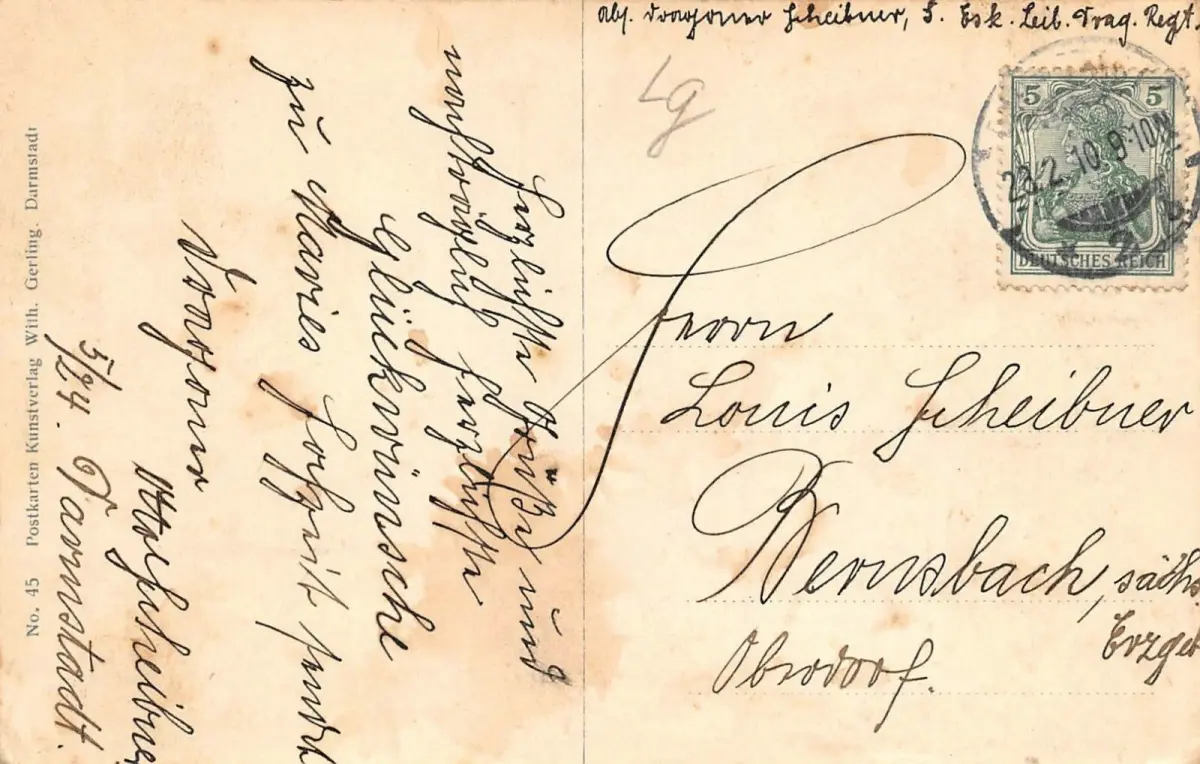 Abs. Dragoner Scheibner, 5. Esk. Leib. Drag. Regt.
Lg
5 5
23.2.10.9-10
DEUTSCHES REICH
Herrn
Louis Scheibner
Bernsbach, sächs.
Erzgeb
Oberdorf.
Herzlichste Grüße und
nachträglich herzlichste
Glückwünsche
zu Maries Hochzeit sendet
Dragoner
Otto Scheibner
5/24. Darmstadt.
No. 45 Postkarten Kunstverlag With. Gerling. Darmstadt